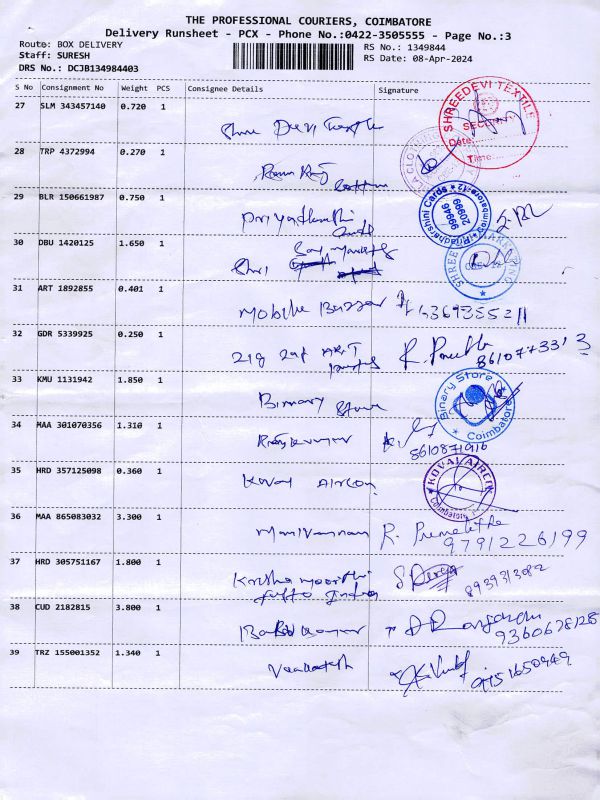 THE PROFESSIONAL COURIERS, COIMBATORE
Delivery Runsheet - PCX - Phone No.:0422-3505555 - Page No.:3
Route: BOX DELIVERY
RS No.: 1349844
Staff: SURESH
RS Date: 08-Apr-2024
DRS No.: DCJB134984403
S No Consignment No Weight PCS Consignee Details Signature
27 SLM 343457140 0.720 1
Shree Devi Textile
SHREEDEVI TEXTILE
SECURITY
Date:
Time:
28 TRP 4372994 0.270 1
29 BLR 150661987 0.750 1
Priyadharshini
Cards
Priyadharshini Cards
Coimbatore-12
99946
20999
30 DBU 1420125 1.650 1
Shri
31 ART 1892855 0.401 1
Mobile Bazzar
32 GDR 5339925 0.250 1
Zig Zag ART
R.
8610773313
33 KMU 1131942 1.850 1
Binary Store
Binary Store
Coimbatore
34 MAA 301070356 1.310 1
Rajkumar
8610871916
35 HRD 357125098 0.360 1
Kovai Aircon
KOVAI AIRCON
Coimbatore
36 MAA 865083032 3.300 1
Manivannan R.
9791226199
37 HRD 305751167 1.800 1
Krishnamoorthi
38 CUD 2182815 3.800 1
9360678128
39 TRZ 155001352 1.340 1
Venkatesh